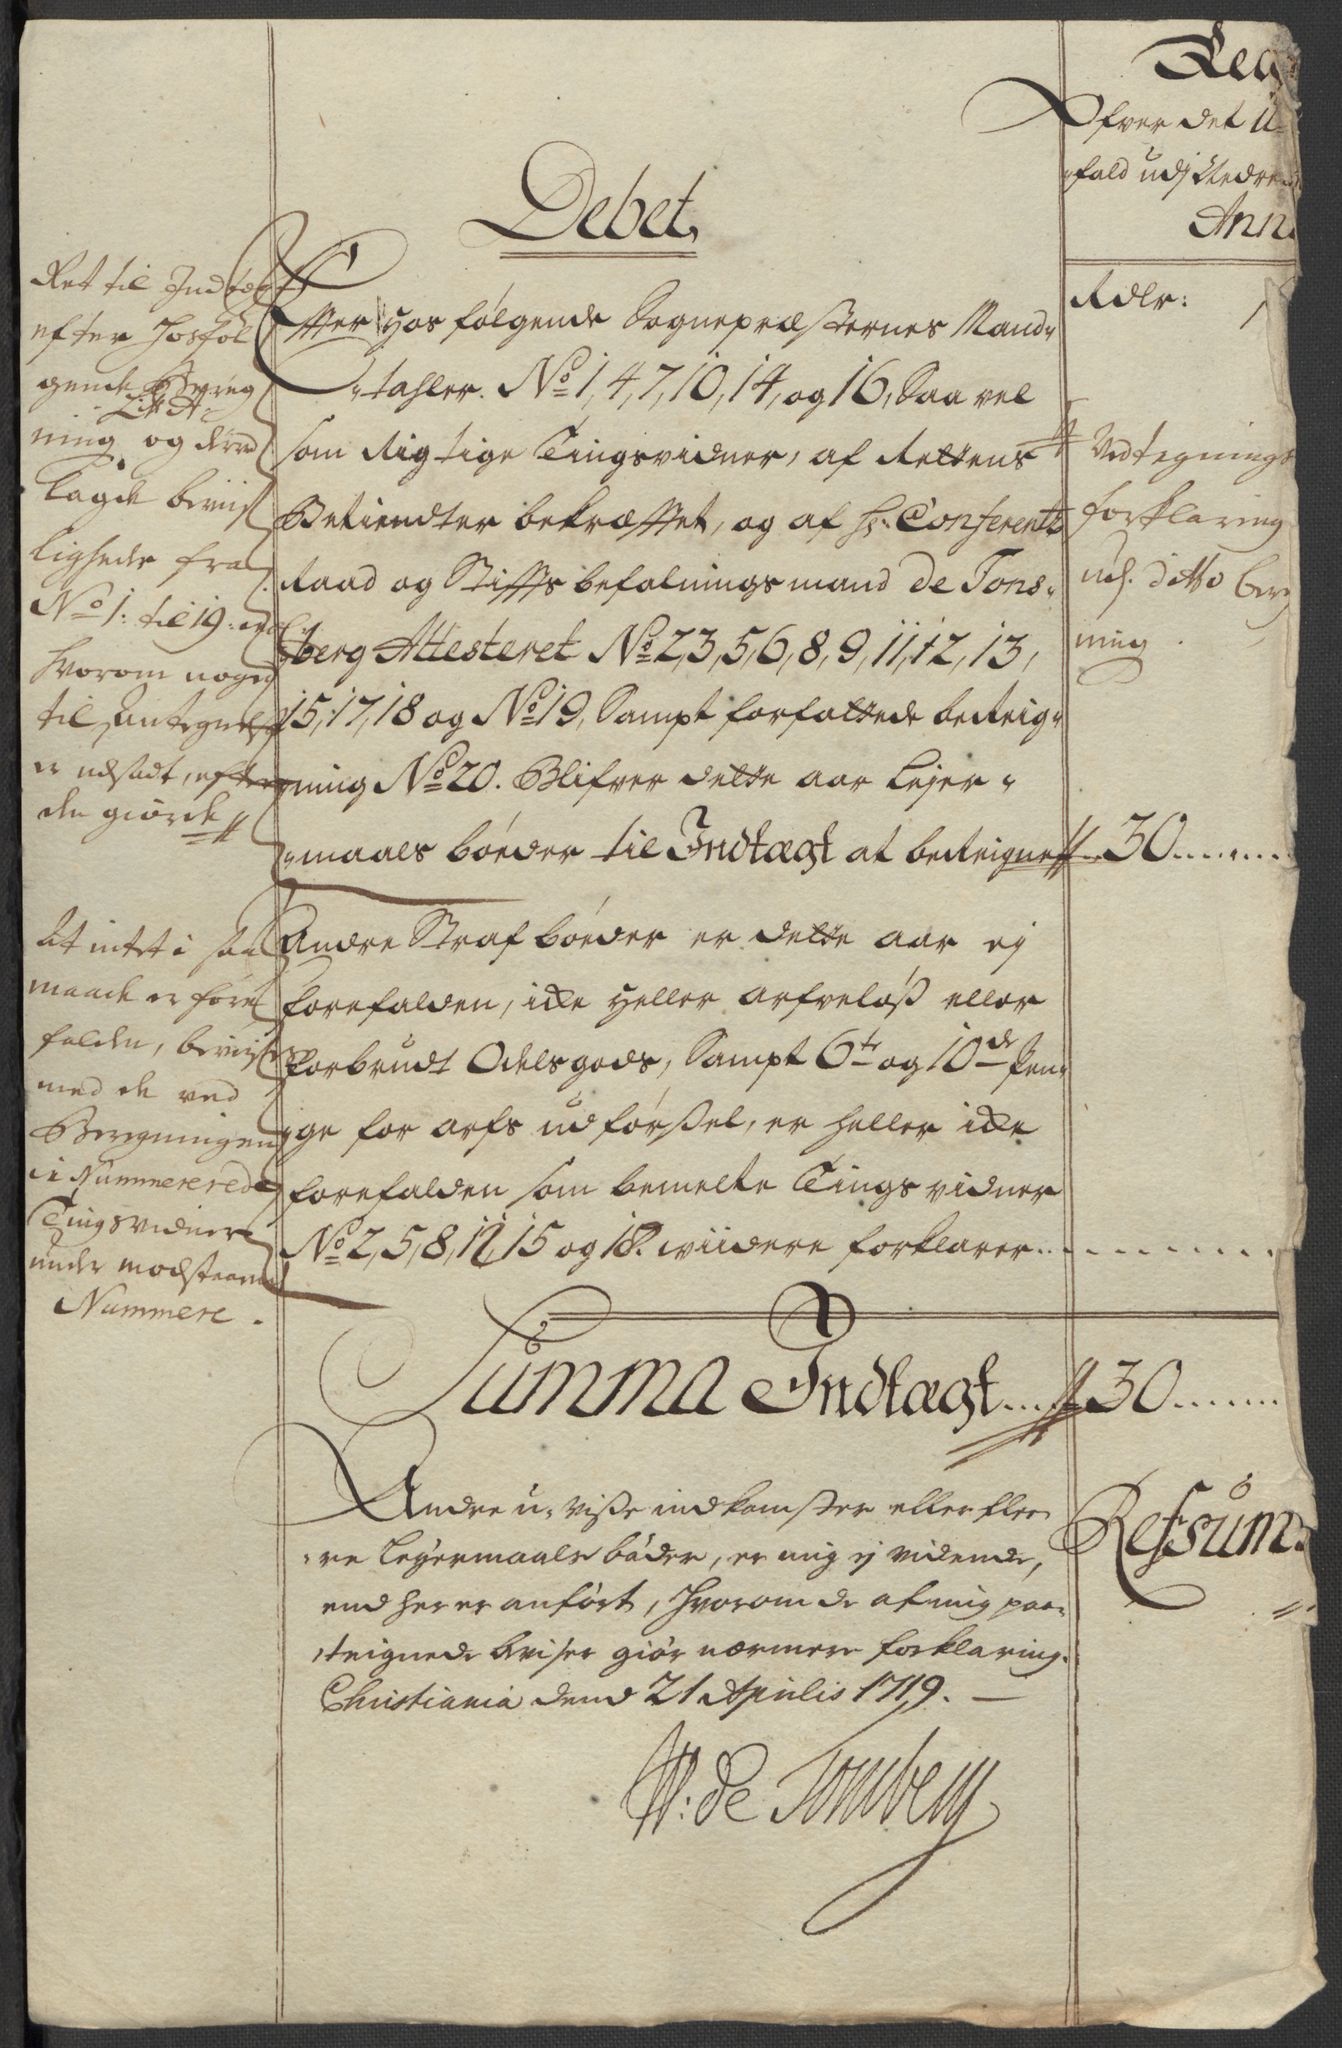 Reg
Ofver det U-
fald udj Nedre
Ann
Debet,
Rdlr:
Ret til Indtægt
efter hosføl
gende Bereg
Litt A
ning og derved
lagde beviis
ligheder fra
No 1: til 19:
hvorom noget
til Antegnelse
er udsadt, efter
den giorde
Effter Hos følgende Sognepræsternes Mand-
-tahler. No 1, 4, 7, 10, 14, og 16, Saa vel
som Rigtige Tingsvidner, af Rettens
Betiendter bekræfftet, og af Hr. Conferentz
Raad og Stiffts befalningsmand de Tons-
berg Attesteret No 2, 3, 5, 6, 8, 9, 11, 12, 13,
15, 17, 18 og No 19, Sampt forfattede beteig-
ning No 20. Blifver dette aar Lejer-
-maals bøeder til Indtægt at beteigne 30
Vedtegnings
forklaring
ud. ditto bereg
ning
At intet i saa
maade er fore
falden, beviises
med de ved
Beregningen
Nummererede
Tingsvidner
under modstaaende
Nummere.
Andre Straf bøeder er dette aar ej
forefalden, icke heller arfveløß eller
forbrudt Odelsgods, Sampt 6te og 10de Pen-
ge for arfs udførßel, er heller icke
forefalden som bemelte Tings vidner
No 2, 5, 8, 12, 15 og 18. viidere forklarer
Summa Indtægt 30
Andre u-visse indkomster eller flee-
-re leyermaals bøder, er mig ej vidende,
end her er anført, hvorom de af mig paa-
teignede beviser giør nærmere forklaring.
Christiania dend 21 Aprilis 1719.
Refsum
W: de Tonsberg